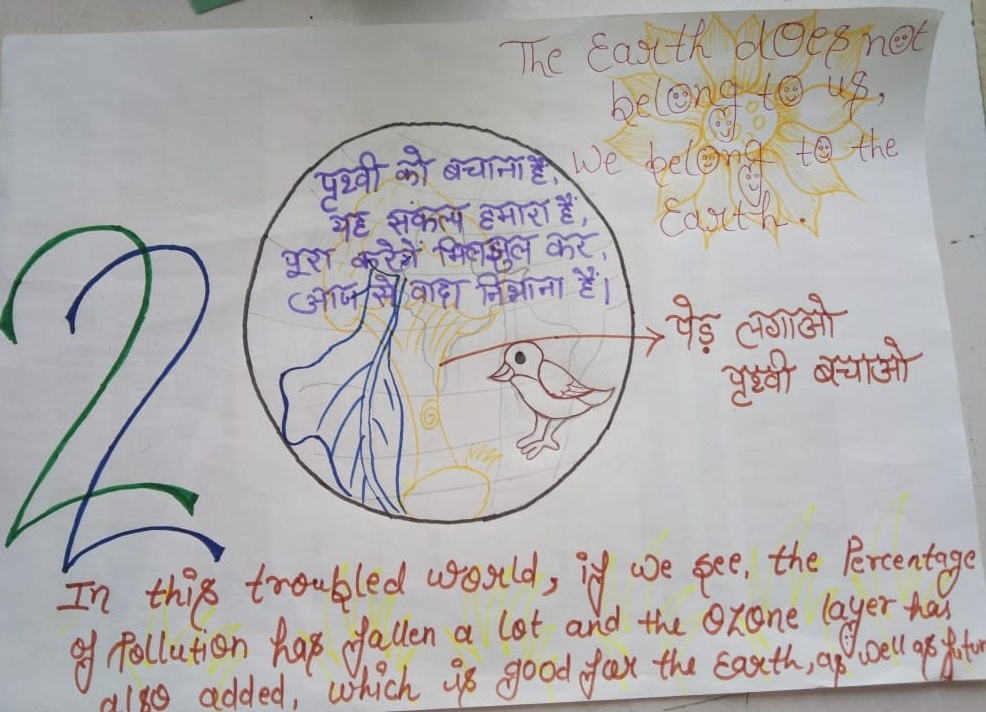 The Earth does not
belong to us,
We belong to the
Earth.
पृथ्वी को बचाना है,
यह संकल्प हमारा है,
पूरा करेगें मिलझुल कर,
आज से वादा निभाना है।
22
पेड़ लगाओ
पृथ्वी बचाओ
In this troubled world, if we see, the Percentage
of Pollution has fallen a lot and the Ozone layer has
also added, which is good for the Earth, as well as futur